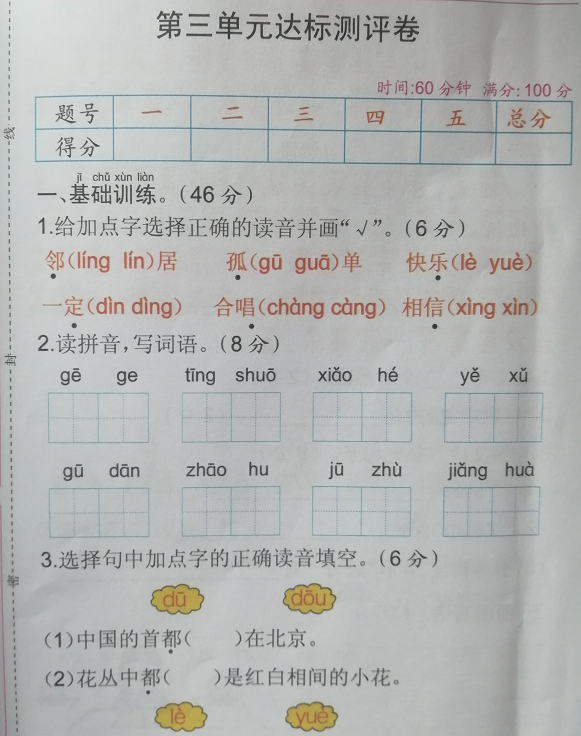 第三单元达标测评卷
时间:60分钟 满分:100分
题号 一 二 三 四 五 总分
得分
jī chǔ xùn liàn
一、基础训练。(46分)
1.给加点字选择正确的读音并画“√”。(6分)
邻(líng lín)居 孤(gū guā)单 快乐(lè yuè)
一定(dìn dìng) 合唱(chàng càng) 相信(xìng xìn)
2.读拼音,写词语。(8分)
gē ge tīng shuō xiǎo hé yě xǔ
gū dān zhāo hu jū zhù jiǎng huà
3.选择句中加点字的正确读音填空。(6分)
dū dōu
(1)中国的首都( )在北京。
(2)花丛中都( )是红白相间的小花。
lè yuè
线
封
密